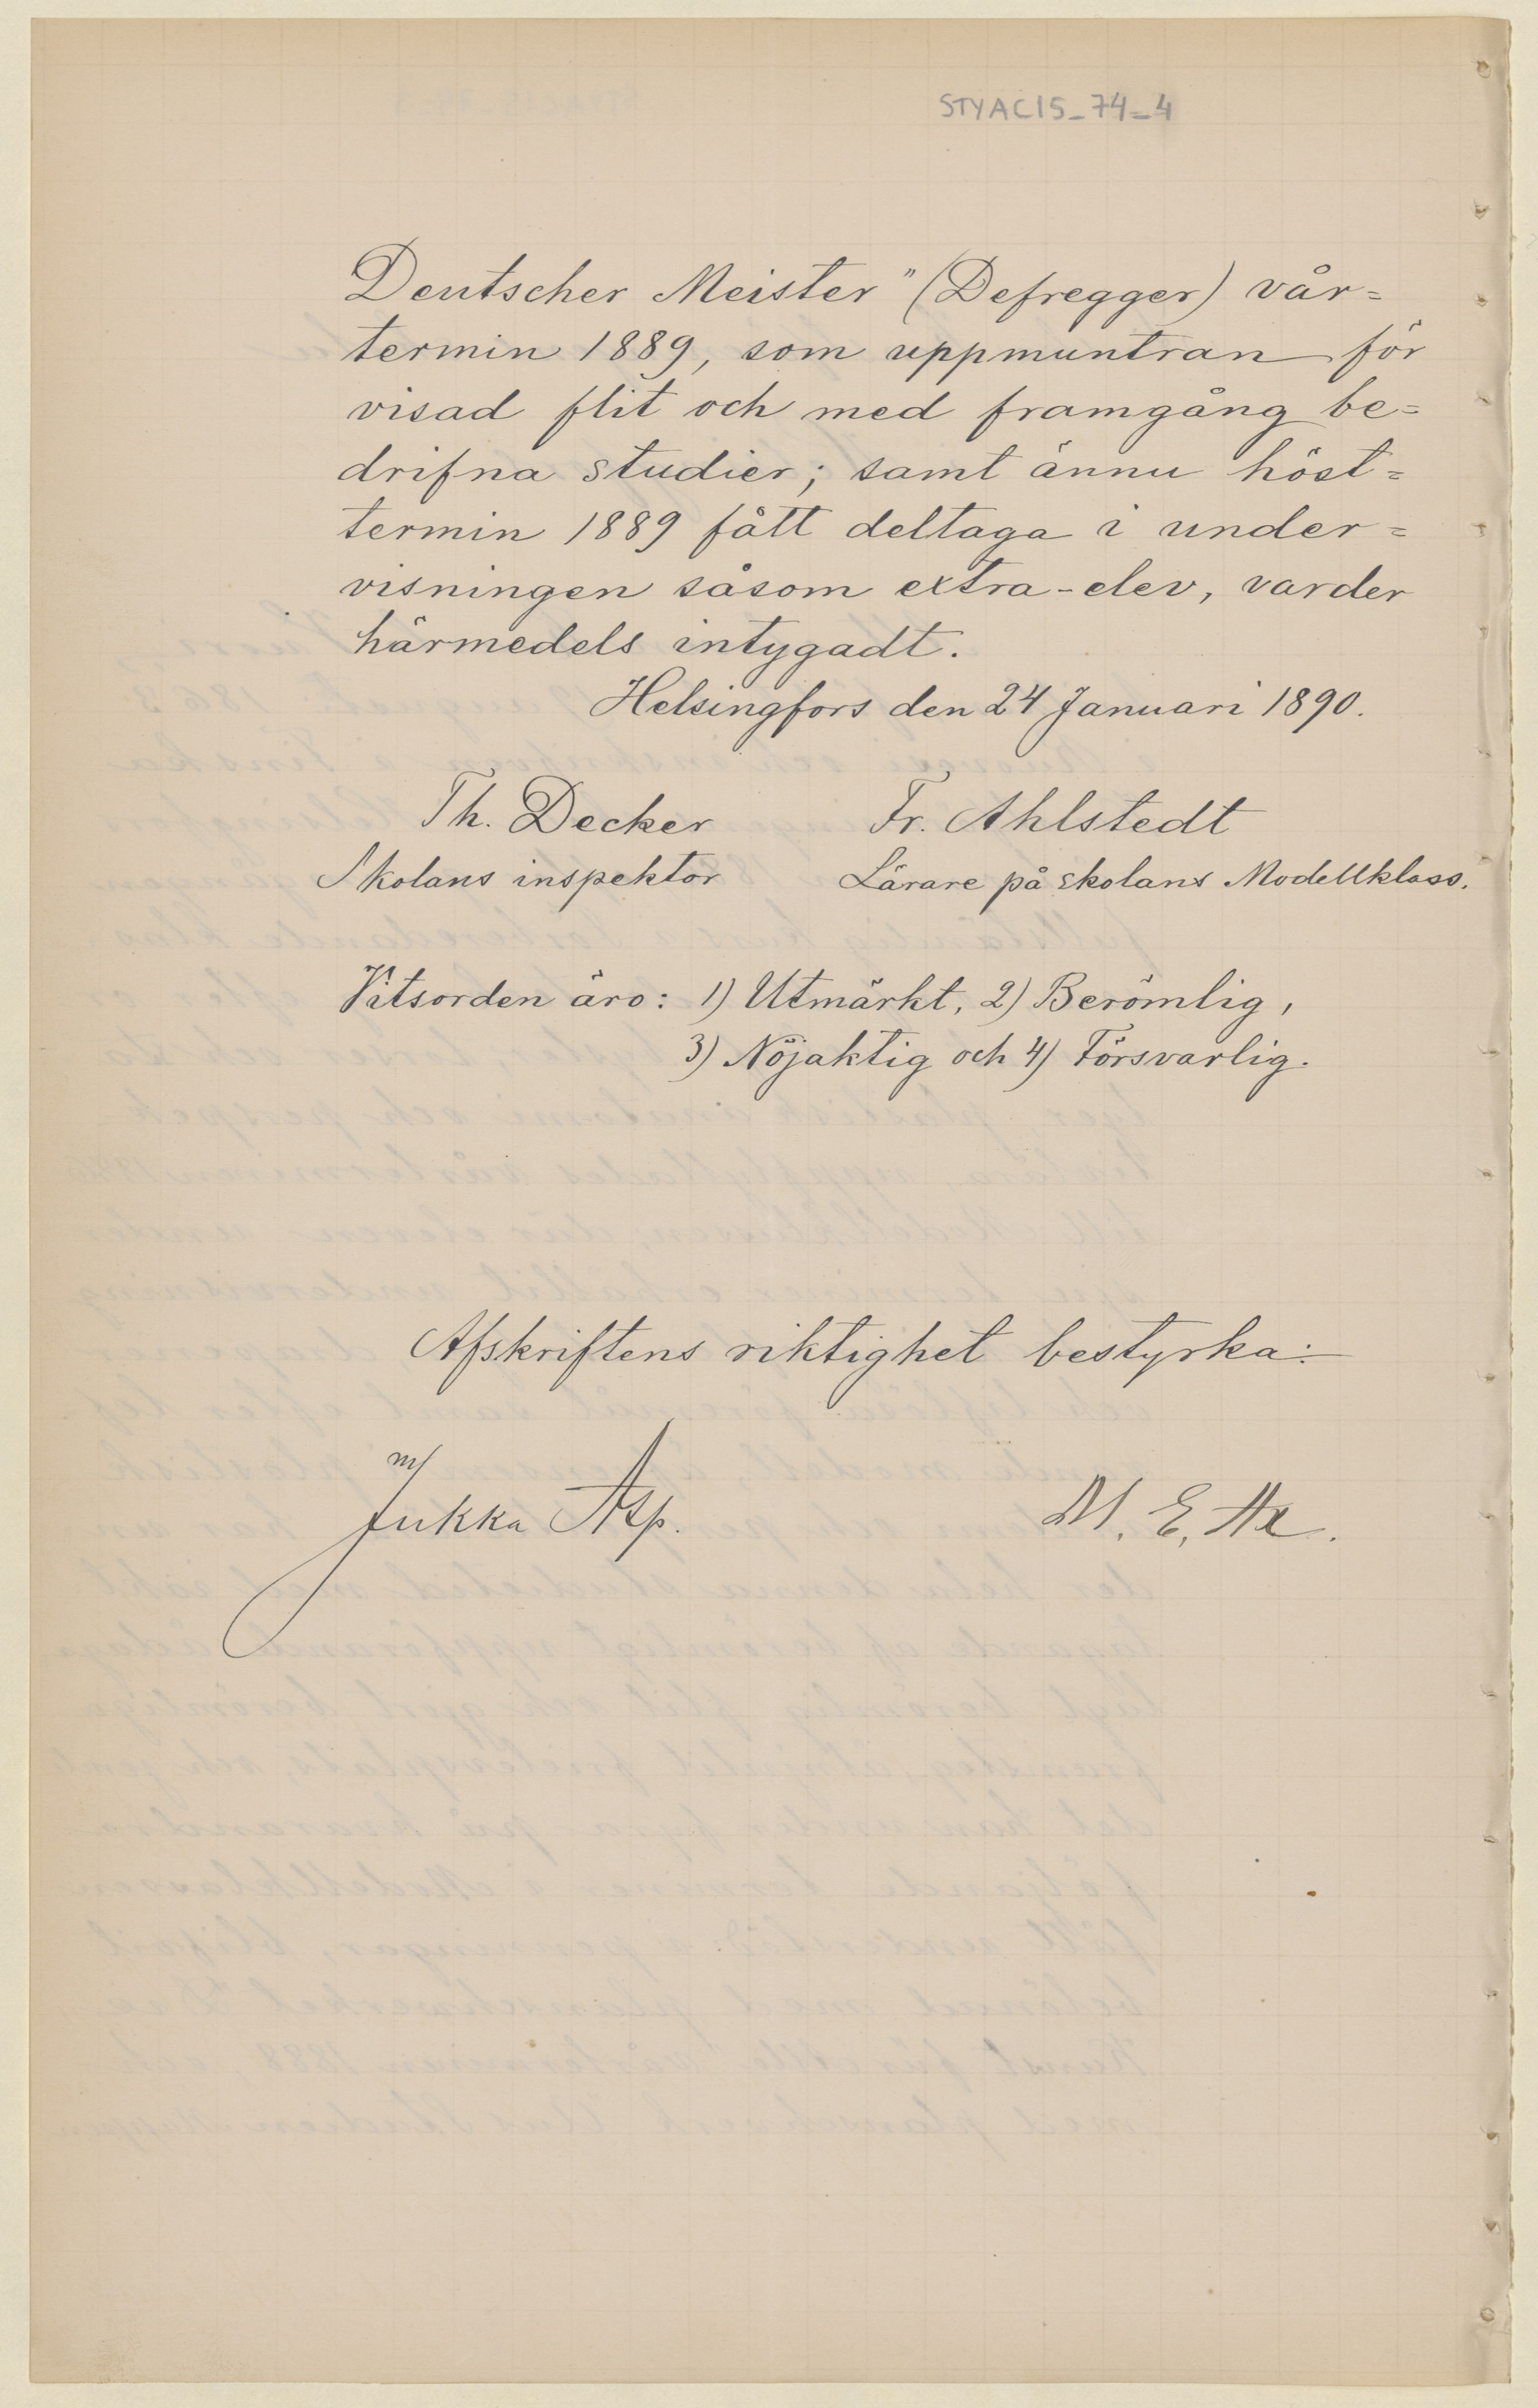 STYAC15_74_4
Deutscher Meister" (Defregger) vår=
termin 1889, som uppmuntran för
visad flit och med framgång be=
drifna studier; samt ännu höst=
termin 1889 fått deltaga i under=
visningen såsom extra-elev, varder
härmedels intygadt.
Helsingfors den 24 Januari 1890.
Th. Decker Fr. Ahlstedt
Skolans inspektor Lärare på skolans Modellklass.
Vitsorden äro: 1) Utmärkt, 2) Berömlig,
3) Nöjaktig och 4) Försvarlig.
Afskriftens riktighet bestyrka:
Jukka Asp. M. E.